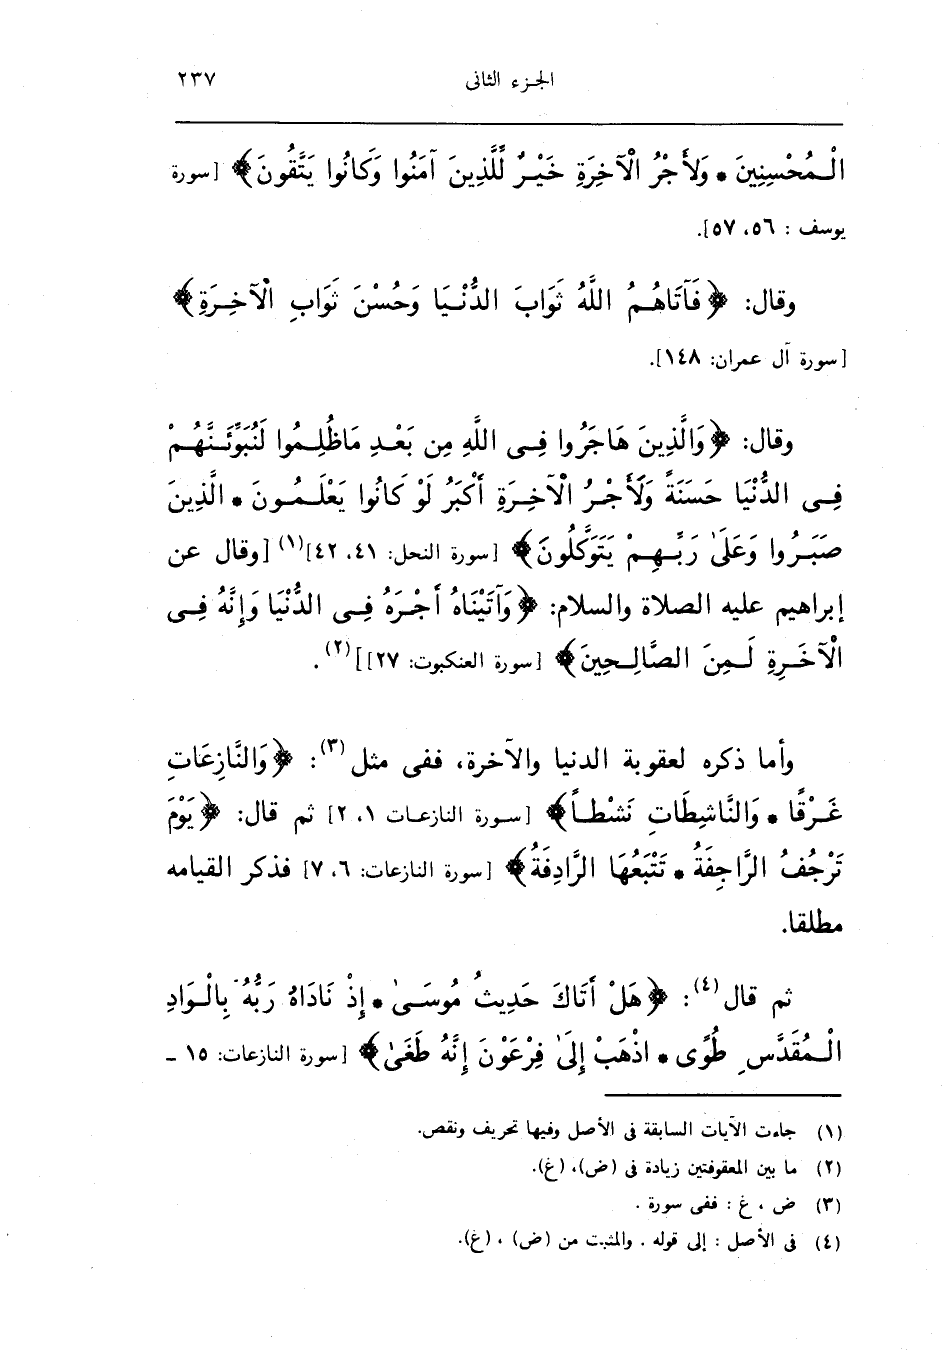 الجزء الثانى ٢٣٧
الْمُحْسِنِينَ * وَلَأَجْرُ الْآخِرَةِ خَيْرٌ لِّلَّذِينَ آمَنُوا وَكَانُوا يَتَّقُونَ﴾ [سورة
يوسف : ٥٦، ٥٧].
وقال: ﴿فَآتَاهُمُ اللَّهُ ثَوَابَ الدُّنْيَا وَحُسْنَ ثَوَابِ الْآخِرَةِ﴾
[سورة آل عمران: ١٤٨].
وقال: ﴿وَالَّذِينَ هَاجَرُوا فِى اللَّهِ مِن بَعْدِ مَاظُلِمُوا لَنُبَوِّئَنَّهُمْ
فِى الدُّنْيَا حَسَنَةً وَلَأَجْرُ الْآخِرَةِ أَكْبَرُ لَوْ كَانُوا يَعْلَمُونَ * الَّذِينَ
صَبَرُوا وَعَلَىٰ رَبِّهِمْ يَتَوَكَّلُونَ﴾ [سورة النحل: ٤١، ٤٢](١) [وقال عن
إبراهيم عليه الصلاة والسلام: ﴿وَآتَيْنَاهُ أَجْرَهُ فِى الدُّنْيَا وَإِنَّهُ فِى
الْآخَرِةِ لَمِنَ الصَّالِحِينَ﴾ [سورة العنكبوت: ٢٧]](٢) .
وأما ذكره لعقوبة الدنيا والآخرة، ففى مثل(٣): ﴿وَالنَّازِعَاتِ
غَرْقًا * وَالنَّاشِطَاتِ نَشْطاً﴾ [سورة النازعات ١، ٢] ثم قال: ﴿يَوْمَ
تَرْجُفُ الرَّاجِفَةُ * تَتْبَعُهَا الرَّادِفَةُ﴾ [سورة النازعات: ٦، ٧] فذكر القيامه
مطلقا.
ثم قال(٤): ﴿هَلْ أَتَاكَ حَدِيثُ مُوسَىٰ * إِذْ نَادَاهُ رَبُّهُ بِالْوَادِ
الْمُقَدَّسِ طُوًى * اذْهَبْ إِلَىٰ فِرْعَوْنَ إِنَّهُ طَغَىٰ﴾ [سورة النازعات: ١٥ ـ
(١) جاءت الآيات السابقة فى الأصل وفيها تحريف ونقص.
(٢) ما بين المعقوفتين زيادة فى (ض)، (غ).
(٣) ض ، غ : ففى سورة .
(٤) فى الأصل : إلى قوله . والمثبت من (ض) ، (غ).